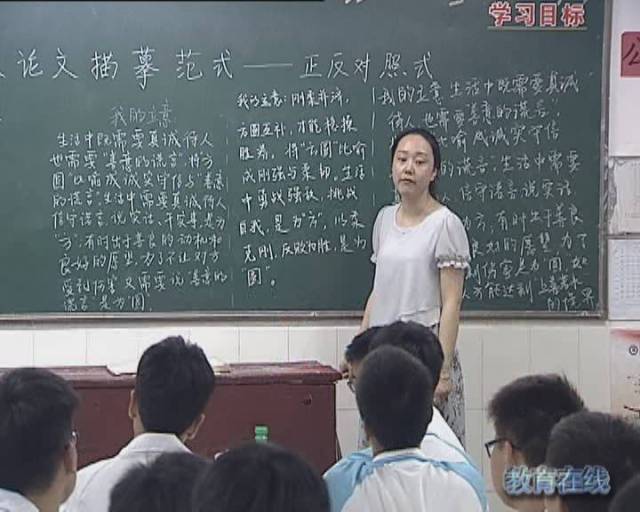 学习目标
论文描摹范式——正反对照式
我的立意
生活中既需要真诚待人
也需要“善意的谎言”将方
圆”比喻成诚实守信与“善意
的谎言”生活中需要真诚待人
信守诺言,说实话、干实事,是为
“方”;有时出于善良的动机和
良好的愿望,为了不让对方
受到伤害又需要说“善意的
谎言”是为“圆”。
我的立意:刚柔并济,
方圆互补,才能稳操
胜券。将“方圆”比喻
成刚强与柔韧,生活
中勇战强敌,挑战
自我,是为“方”,以柔
克刚,反败为胜,是为
“圆”。
我的立意 生活中既需要真诚
待人 也需要善意的谎言
成诚实守信
的谎言 生活中常需
信守诺言 说实话
为方,有时出于善良
愿望 为了
是为圆
才能达到
教育在线